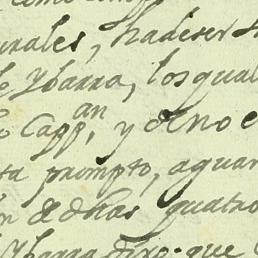 urales, ha de ser
Ybarra, los qual
Capp.an, y de no
ta prompto, aguar
de dhas quatro
Ybarra dixo que